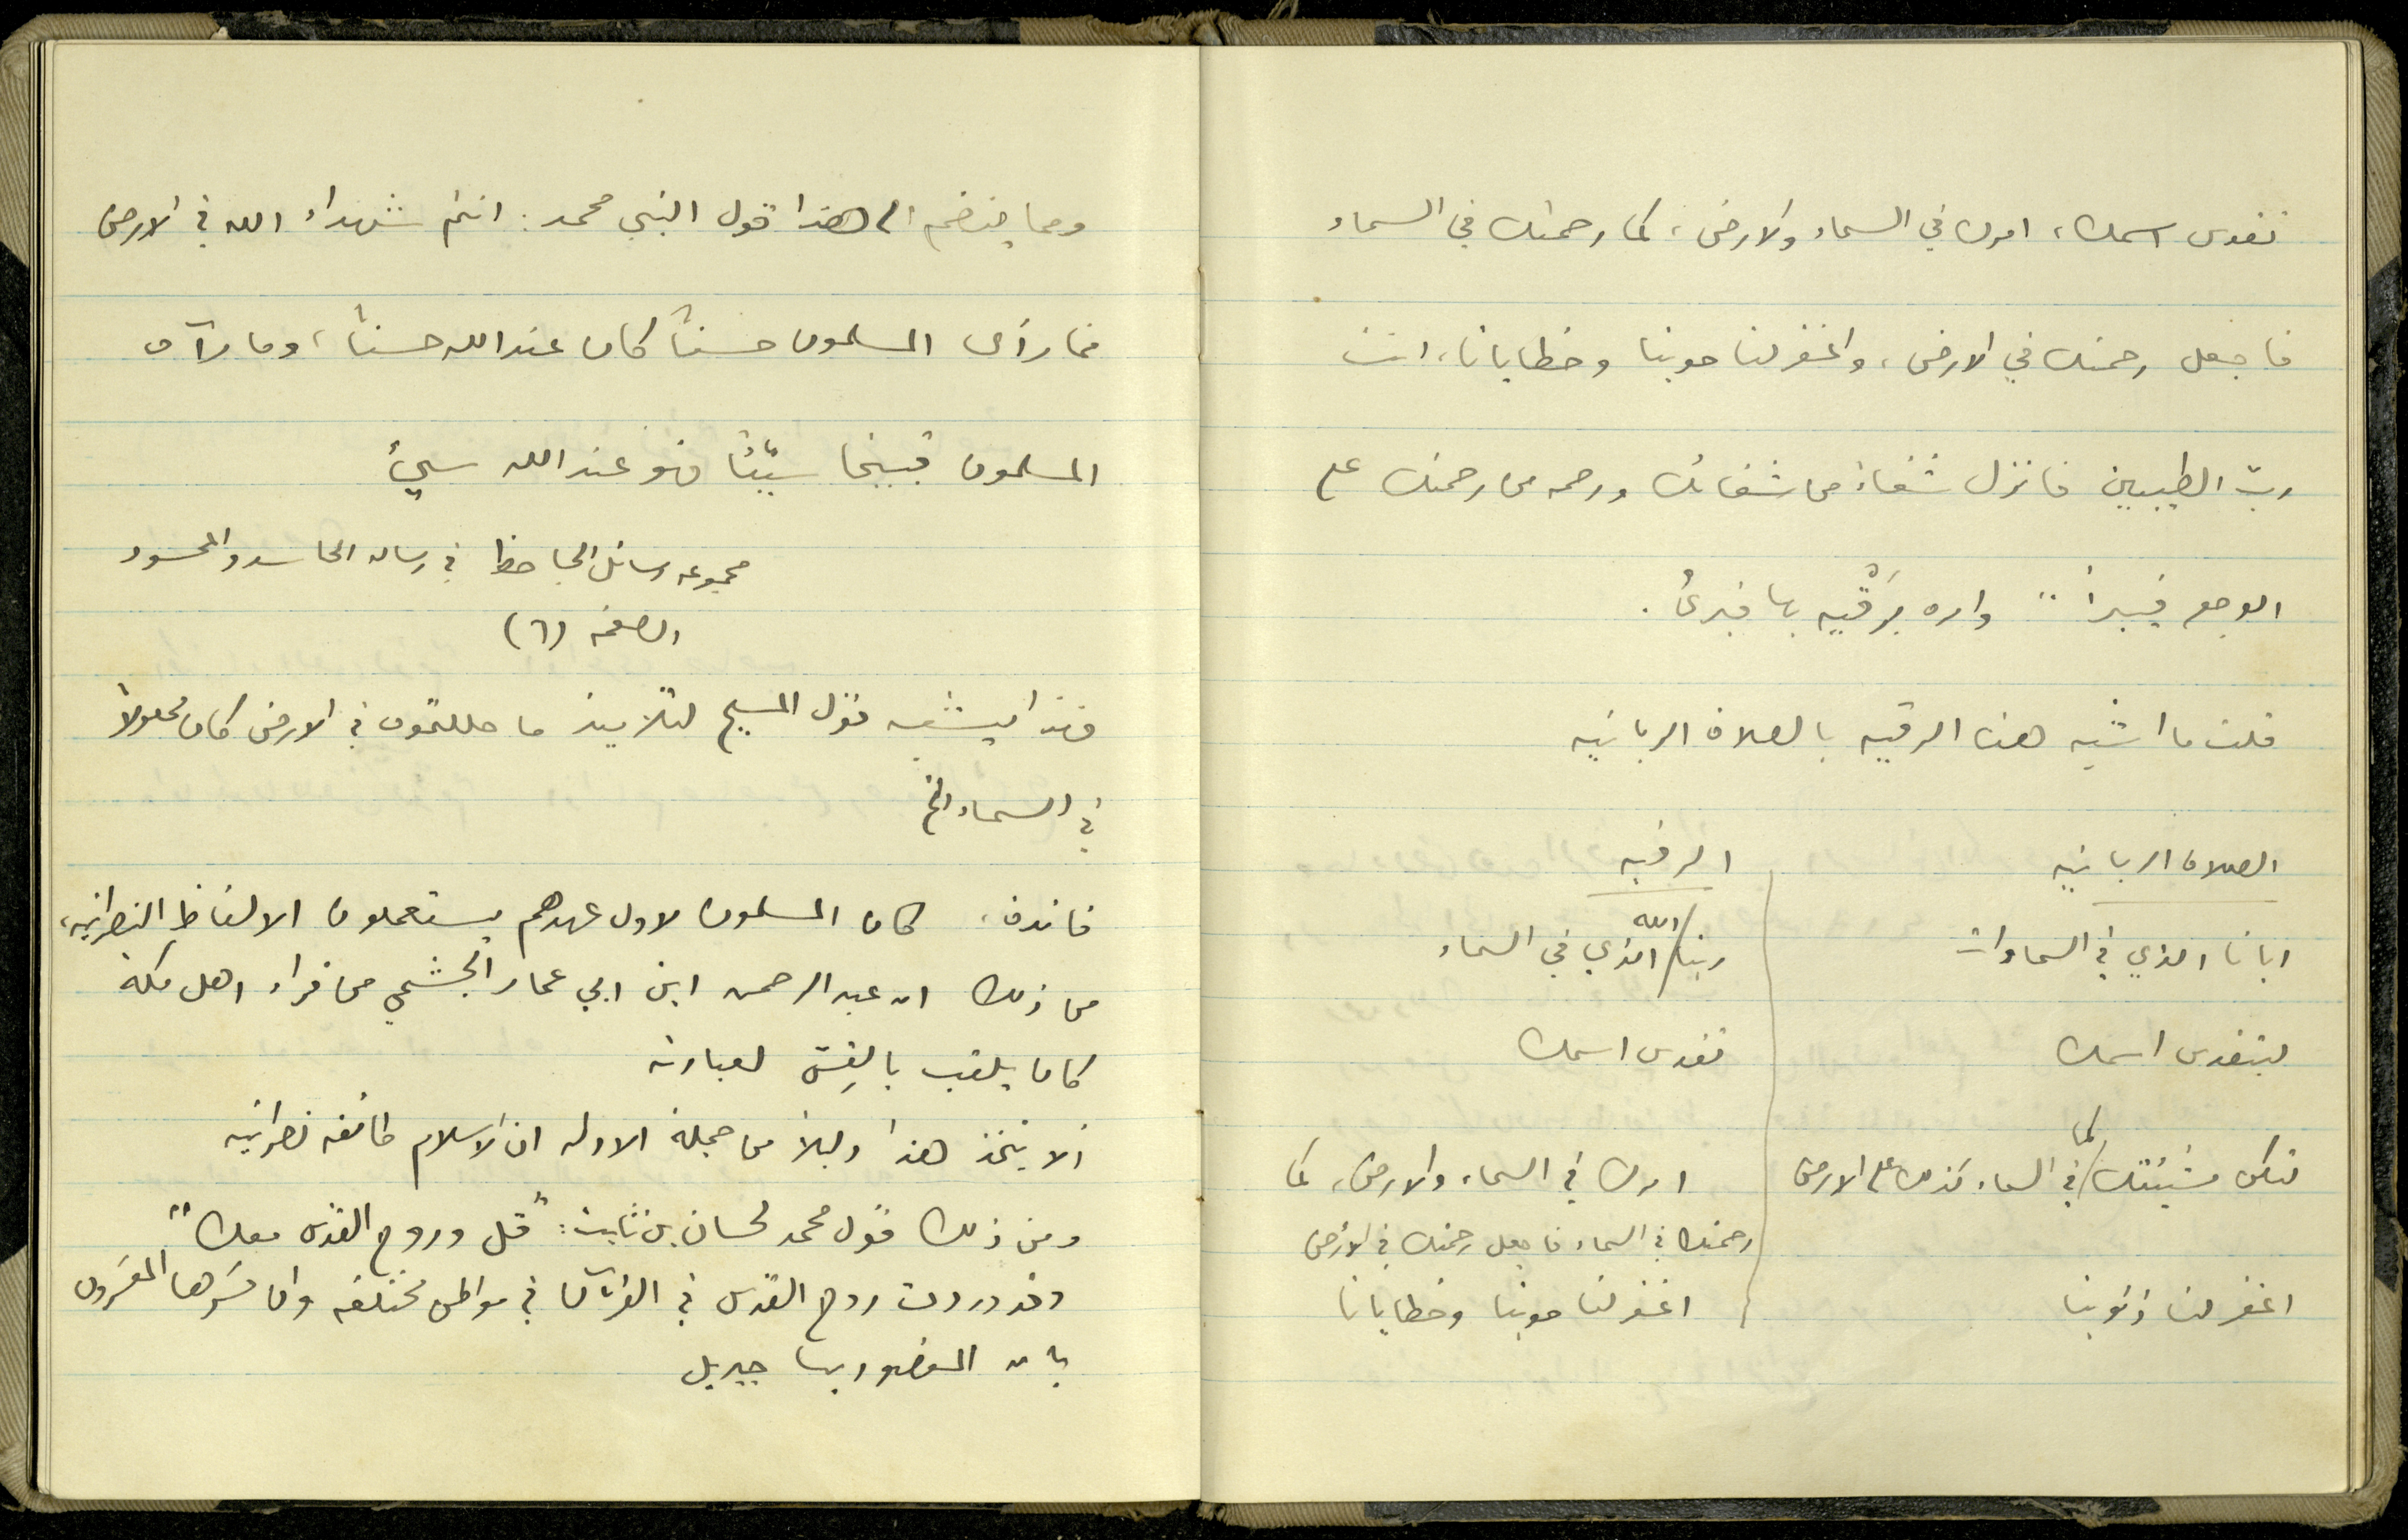 تقدس اسمك، امرك في السماء والارض، كما رحمتك في السماء
فاجعل رحمتك في الارض، واغفر لنا حوبنا وخطايانا، انت
ربّ الطيبين فانزل شفاءً من شفائك ورحمه من رحمتك على
الوجع فيبرأ" وامره يَرْقيه بها فبرئ.
قلت ما اشبه هذه الرقيه بالصلاة الربانيه
الصلاة الربانيه
الرقيه
ابانا الذي في السماوات
ربنا الله الذي في السماء
ليتقدس اسمك
تقدس اسمك
لتكن مشيئتك كما في السماء كذلك على الارض
امرك في السماء والارض، كما
رحمتك في السماء فاجعل رحمتك في الارض
اغفر لنا ذنوبنا
اغفر لنا حوبنا وخطايانا
ومما ينضم الى هذا قول النبي محمد: انتم شهداء الله في الارض
فما رأى المسلمون حسناً كان عند الله حسناً، وما رآه
المسلمون قبيحا سيّئًا فهو عند الله سيئ
مجموعه رسائل الجاحظ في رساله الحاسد والمحسود
الصفحه (٦)
فهذا يشبه قول المسيح لتلاميذ ما حللتموه في الارض كان محلولاً
في السماء الخ
فائدة، كان المسلمون لاول عهدهم يستعملون الالفاظ النصرانيه،
من ذلك ان عبد الرحمن ابن ابي عمار الجشمي من قراء اهل مكة
كان يلقب بالقِسّ لعبادته
ألا يتخذ هذا دليلاً من جملة الادله ان الاسلام طائفه نصرانيه
ومن ذلك قول محمد لحسان بن ثابت: "قل وروح القدس معك"
وقد وردت روح القدس في القرآن في مواطن مختلفه وان فسّرها المفسّرون
بان المقصود بها جبريل